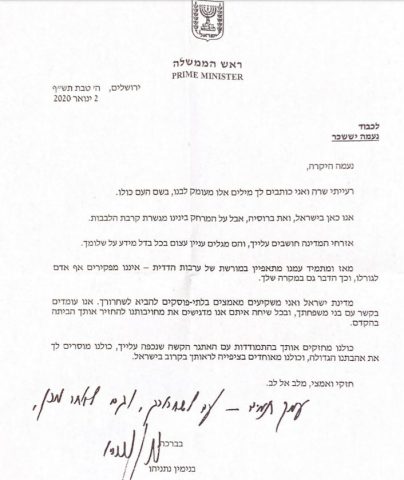 ראש הממשלה
PRIME MINISTER
ירושלים, ה' טבת תש"ף
2 ינואר 2020
לכבוד
נעמה יששכר
נעמה היקרה,
רעייתי שרה ואני כותבים לך מילים אלו מעומק לבנו, בשם העם כולו.
אנו כאן בישראל, ואת ברוסיה, אבל על המרחק בינינו מגשרת קרבת הלבבות.
אזרחי המדינה חושבים עלייך, והם מגלים עניין עצום בכל בדל מידע על שלומך.
מאז ומתמיד עמנו מתאפיין במורשת של ערבות הדדית – איננו מפקירים אף אדם
לגורלו, וכך הדבר גם במקרה שלך.
מדינת ישראל ואני משקיעים מאמצים בלתי-פוסקים להביא לשחרורך. אנו עומדים
בקשר עם בני משפחתך, ובכל שיחה איתם אנו מדגישים את מחויבותנו להחזיר אותך הביתה
בהקדם.
כולנו מחזקים אותך בהתמודדות עם האתגר הקשה שנכפה עלייך, כולנו מוסרים לך
את אהבתנו הגדולה, וכולנו מאוחדים בציפייה לראותך בקרוב בישראל.
חזקי ואמצי, מלב אל לב.
עמך תמיד – עד לשחרורך, וגם לאחר מכן,
בברכה
בנימין נתניהו